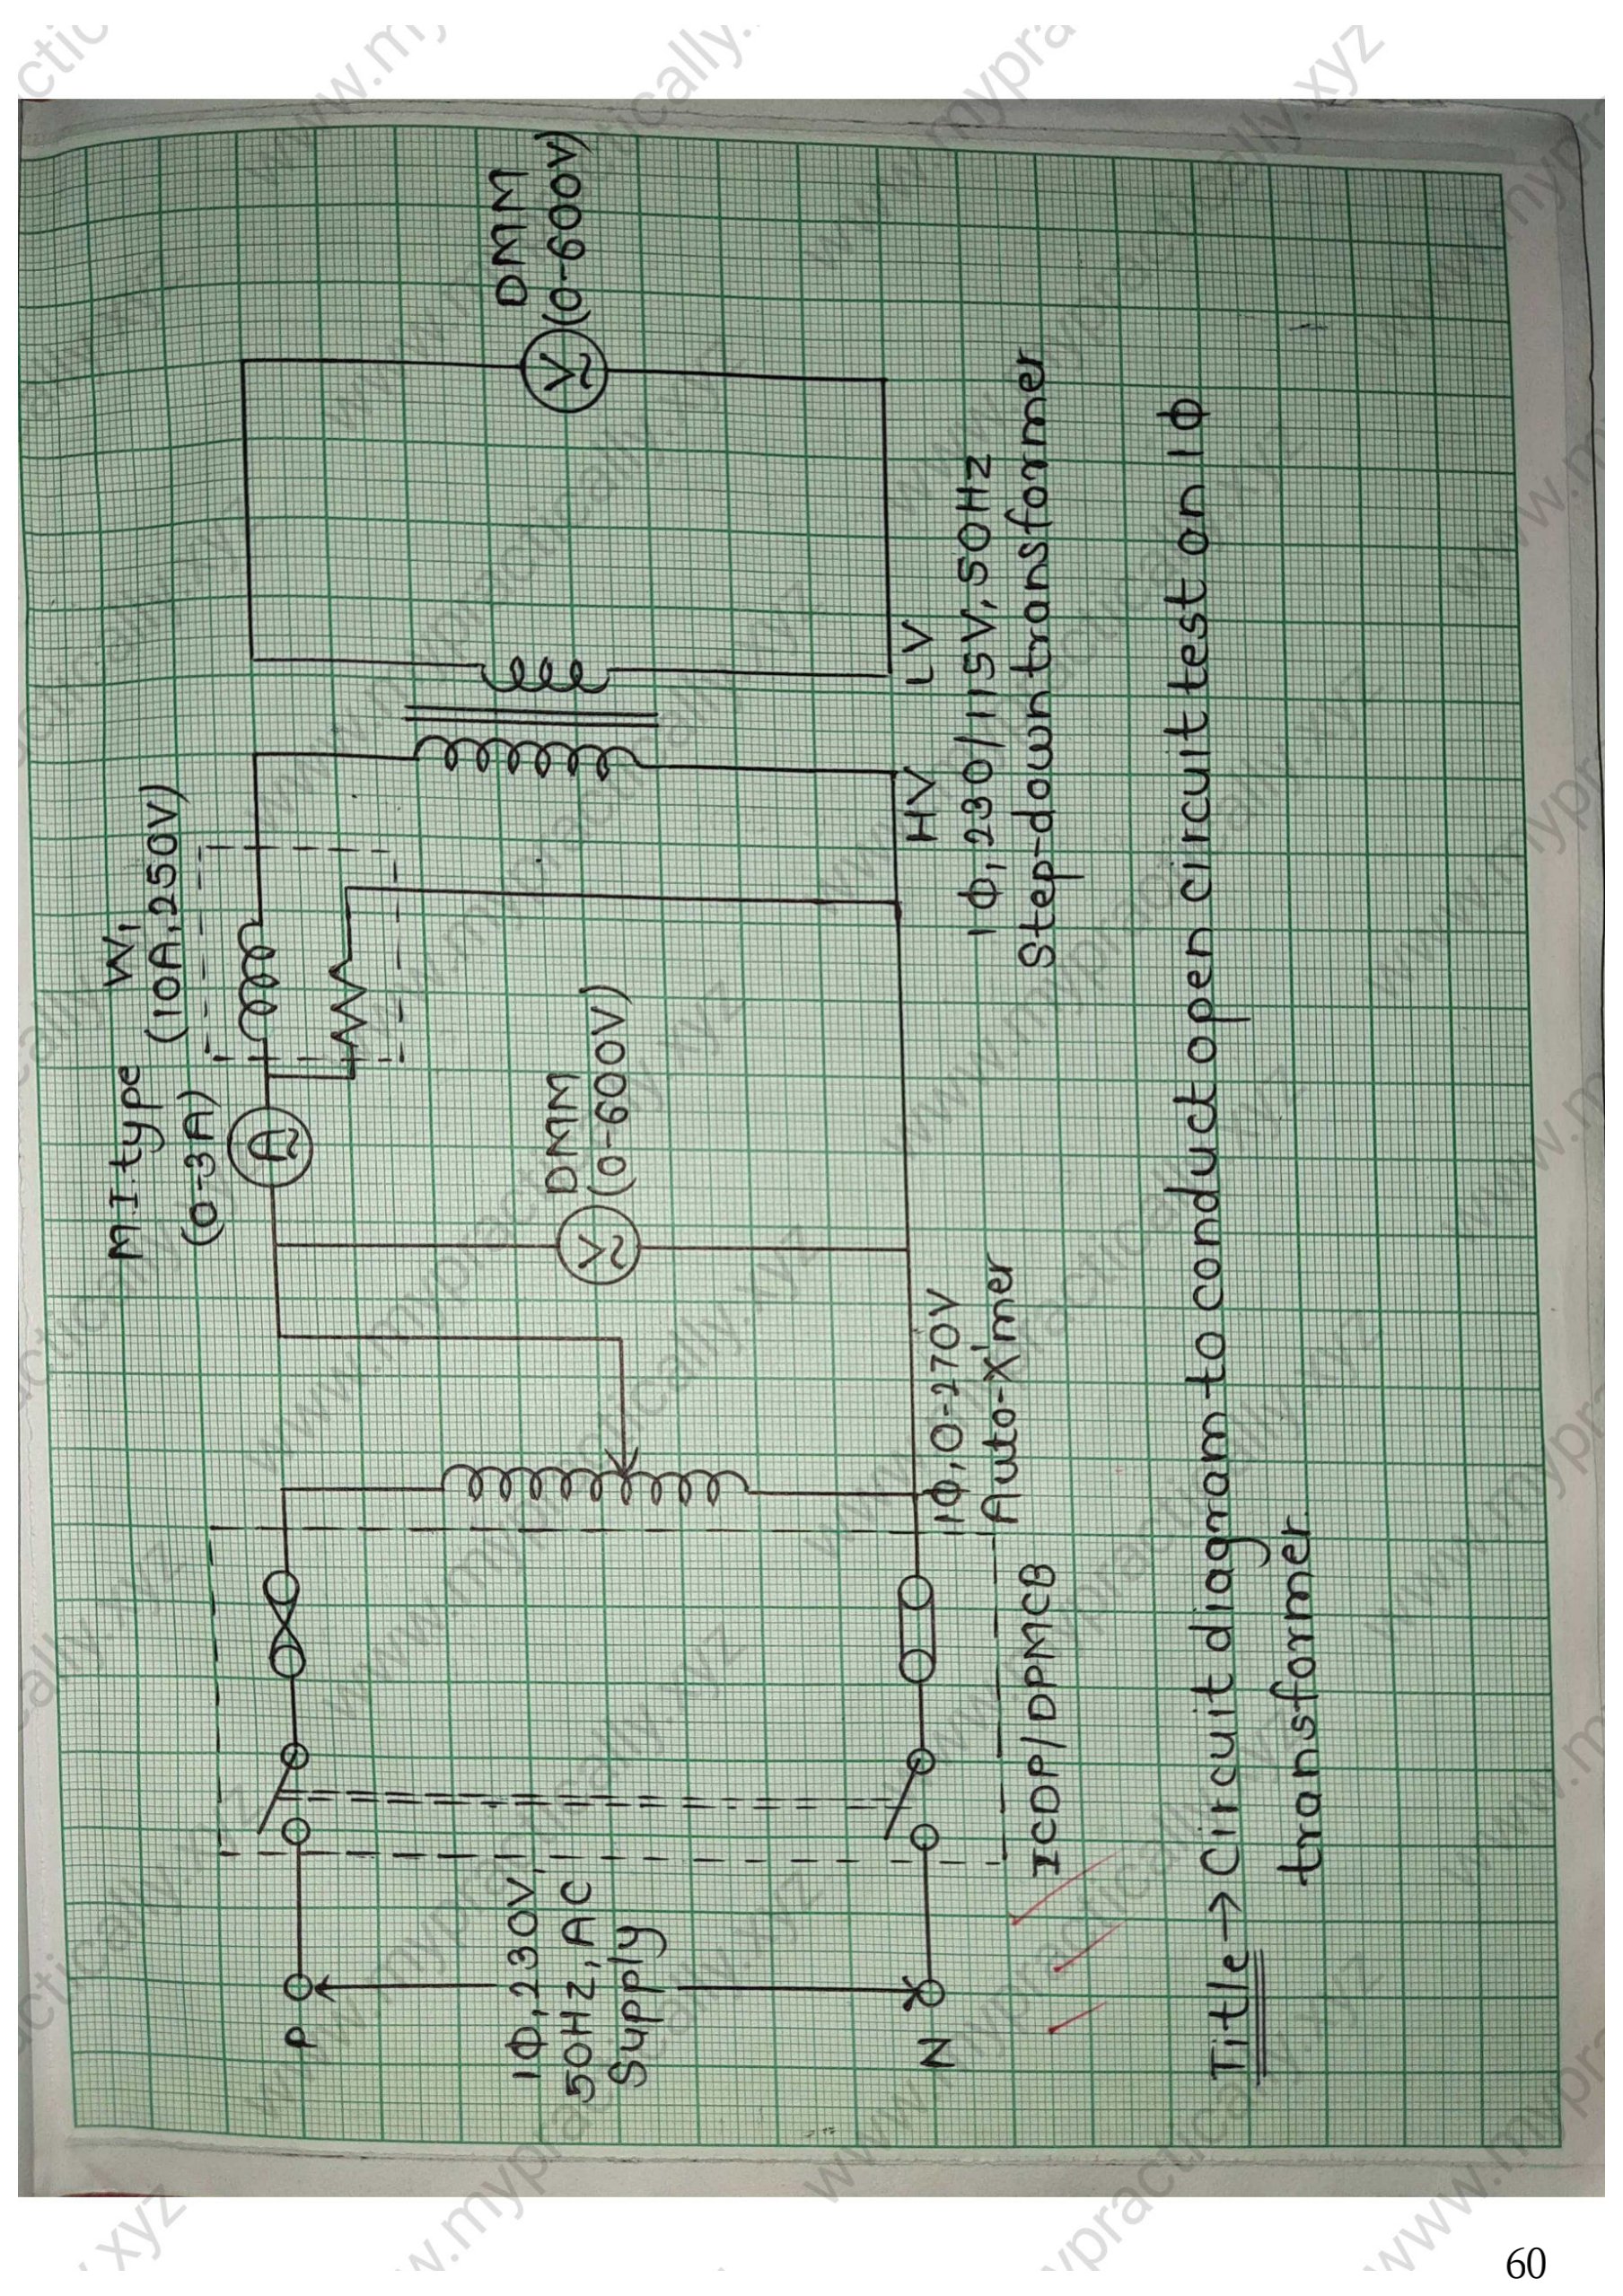 M.I. type
(0-3A)
W1
(10A, 250V)
P
1Φ, 230V,
50HZ, AC
Supply
N
ICDP/DPMCB
1Φ, 0-270V
Auto-X'mer
A
~
V
~
DMM
(0-600V)
HV
LV
1Φ, 230/115V, 50HZ
Step-down transformer
V
~
DMM
(0-600V)
Title → Circuit diagram to conduct open circuit test on 1Φ
transformer.
www.mypractically.xyz
60